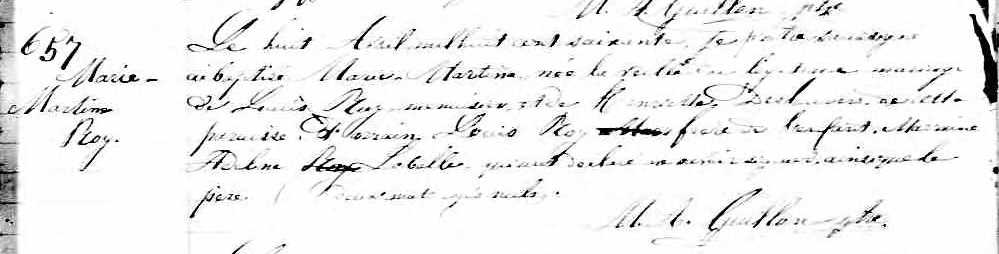 M. A. Guillon ptre
657
Le huit Avril mil huit cent soixante, je prêtre soussigné
Marie-
ai baptisé Marie-Martine née la veille du légitime mariage
Martine
de Louis Roy menuisier et de Henriette de cette
Roy.
paroisse. Parrain Louis Roy frère de l'enfant, Marraine
Labelle qui ont déclaré ne savoir signer, ainsi que le
père. Deux mots rayés nuls.
M. A. Guillon ptre.